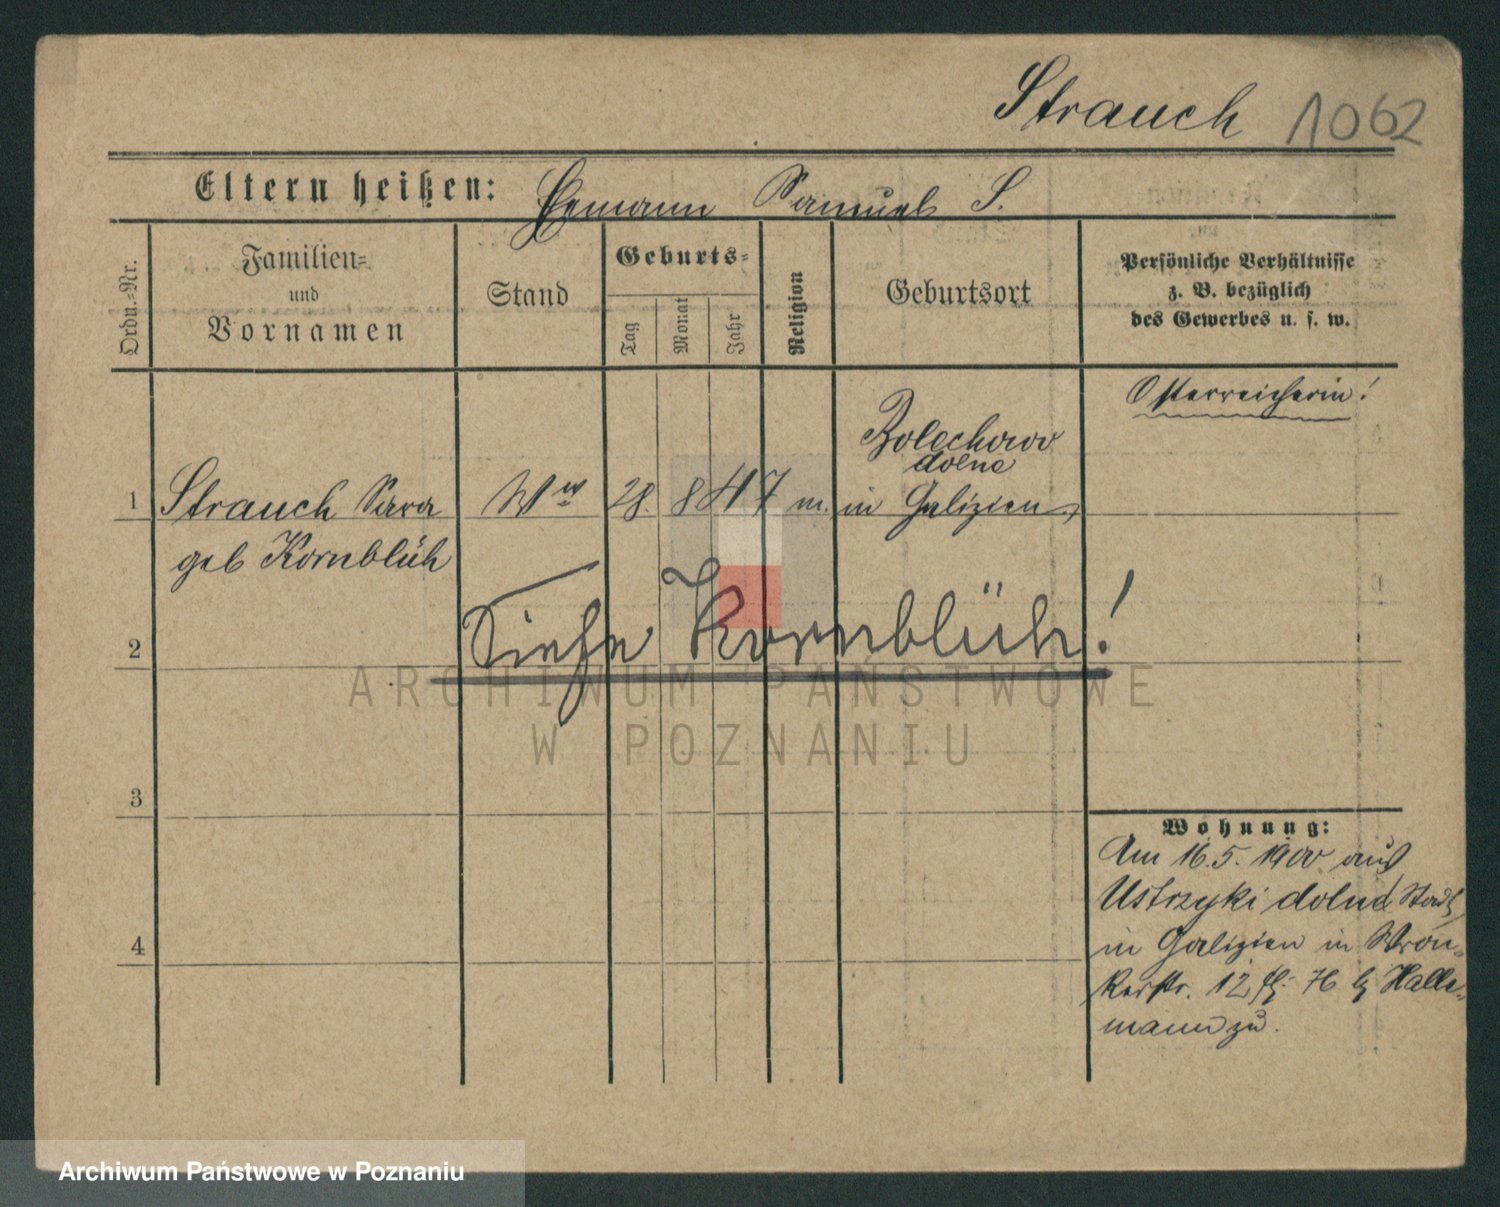 Strauch 1062
Eltern heißen: Hemann Samuel S.
Ordn.-Nr.
Familien-
und
Vornamen
Stand
Geburts-
Tag
Monat
Jahr
Religion
Geburtsort
Persönliche Verhältnisse
z. B. bezüglich
des Gewerbes u. s. w.
Österreicherin!
Bolechow
dolne
1 Strauch Sara Ww 28. 8 47 m. in Galizien
geb Kornblüh
2 Siehe Kornblüh!
ARCHIWUM PAŃSTWOWE
W POZNANIU
3
Wohnung:
Am 16.5. 1900 aus
Ustrzyki dolne Stadt
4
in Galizien in Wron-
kerstr. 12 H. b Halle-
mann zu.
Archiwum Państwowe w Poznaniu